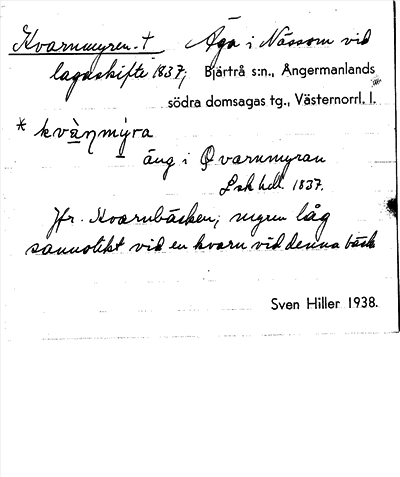 Kvarnmyren. † Äga i Nässom vid
lagaskifte 1837; Bjärtrå s:n., Ångermanlands
södra domsagas tg., Västernorrl. l.
* kvàṇmýra
äng i Qvarnmyran
Lsk hdl. 1837.
Jfr. Kvarnbäcken; myren låg
sannolikt vid en kvarn vid denna bäck
Sven Hiller 1938.